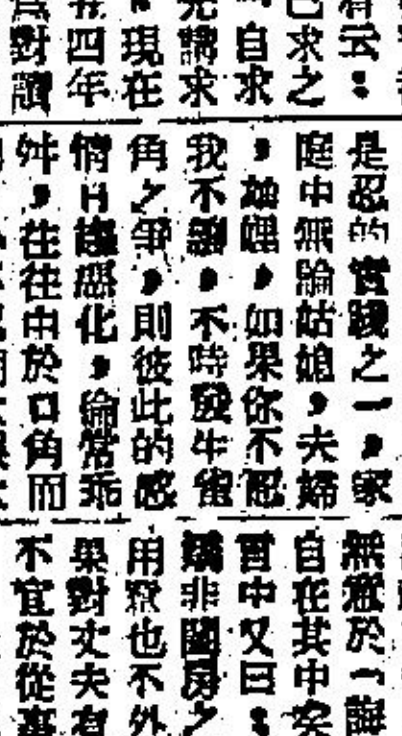 云：
己求之
「自求
先講求
，現在
四年
對讀
是忍的實踐之一，家
庭中無論姑媳，夫婦
，妯娌，如果你不
我不讓，不時發生雀
角之爭，則彼此的感
情日趨惡化，倫常乖
舛，往往由於口角而
無意於「
自在其中矣
中又曰：
非閨房之
用 也不外
果對丈夫有
不宜於從事